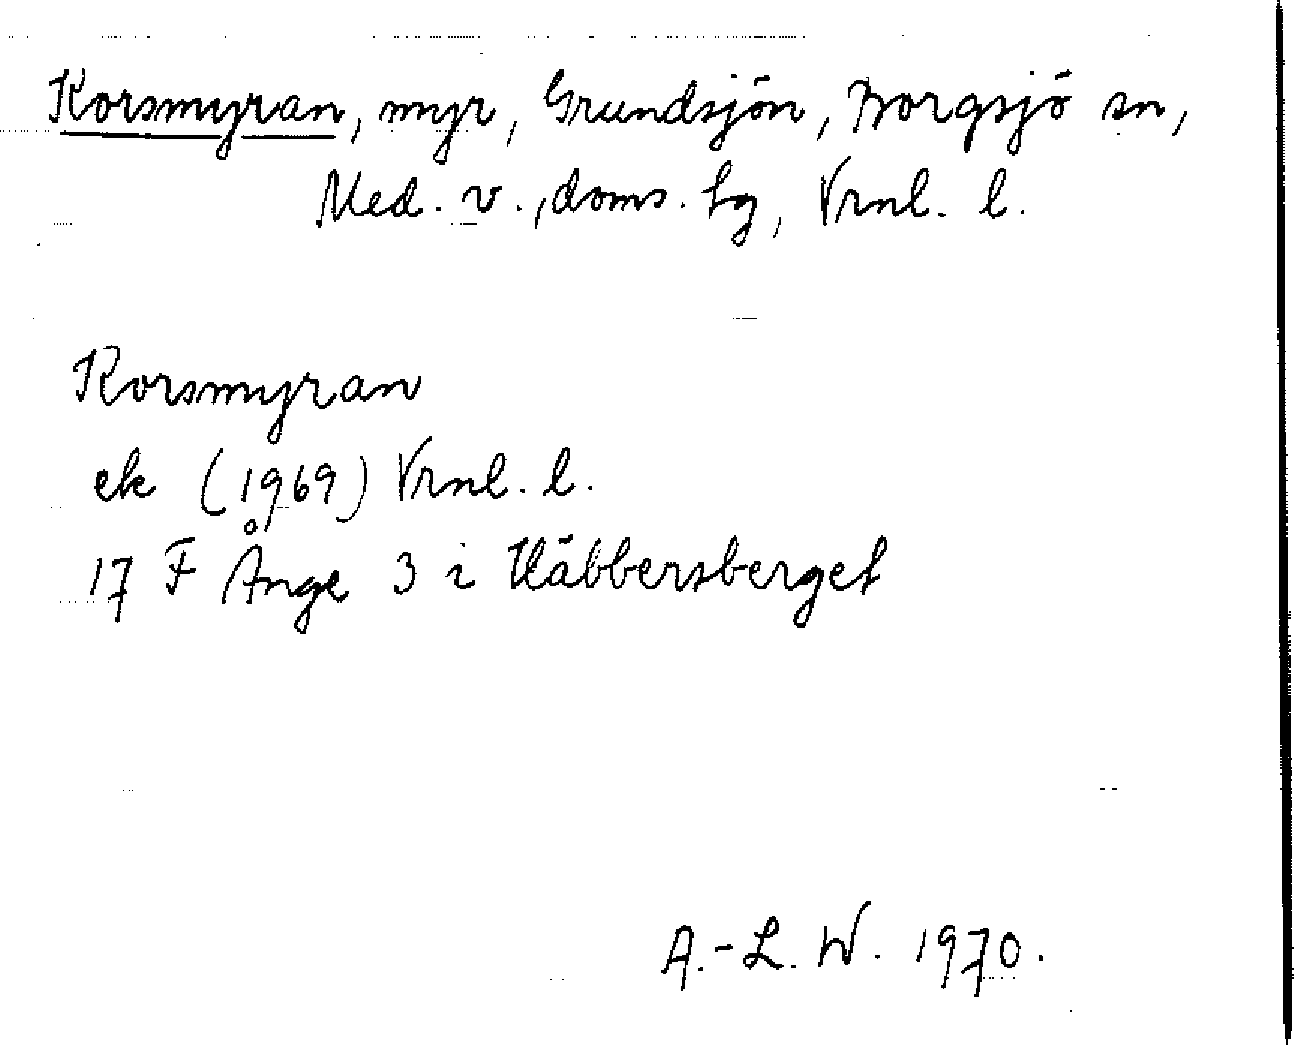 Korsmyran, myr, Grundsjön, Borgsjö sn,
Med. v., doms. hg, Vrnl. l.
Korsmyran
ek (1969) Vrnl. l.
17 F Ånge 3 i Häbbersberget
A.-L. W. 1970.